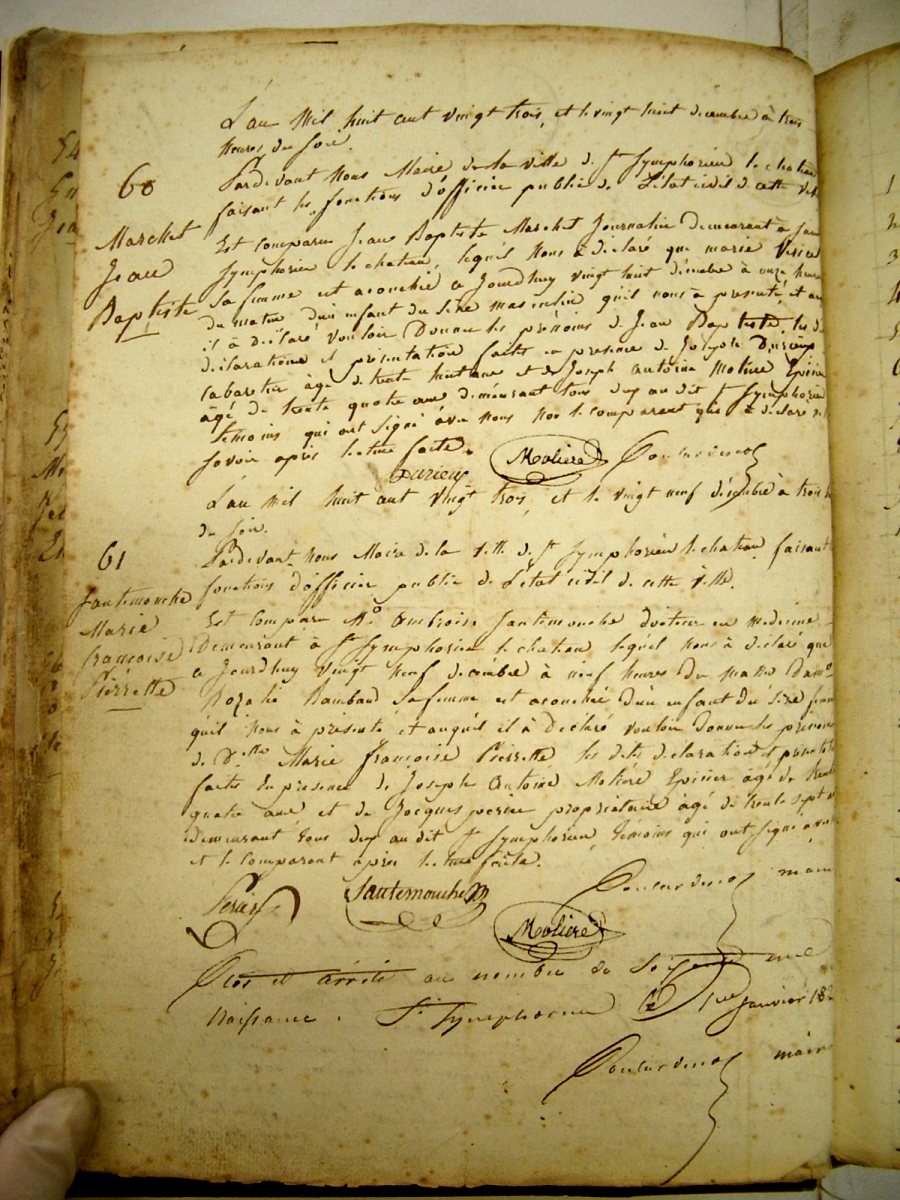 L'an Mil huit cent vingt trois, et le vingt huit décembre à trois
heures du soir.
60
Pardevant Nous Maire de la ville de St Symphorien le chateau
faisant les fonctions d'officier public de l'état civil de cette ville
Marchet
Jean
Baptiste
Est comparu Jean Baptiste Marchet Journalier demeurant à
Symphorien le chateau, lequel nous à déclaré que marie
sa femme est acouchée a Jourdhuy vingt huit décembre à onze heures
du matin d'un enfant du sexe masculin qu'il nous à presenté, et au
il à déclaré vouloir Donner les prénoms de Jean Baptiste, les d
déclarations et présentation faites en presence de Joseph Durieux
Cabaretier âgé de trente huit ans et de Joseph Antoine Moliere Epicier
âgé de trente quatre ans demeurant tous deux au dit St Symphorien
témoins qui ont signé avec nous non le comparant qui à déclaré ne
savoir après lecture faite.
Durieux Moliere
L'an Mil huit cent vingt trois, et le vingt neuf décembre à trois h
du soir.
61
Pardevant nous Maire de la ville de St Symphorien le chateau faisant
fonctions d'officier public de l'état civil de cette ville.
Sautemouche
Marie
françoise
Pierrette
Est comparu Mr Ambroise Sautemouche docteur en medecine
demeurant à St Symphorien le chateau lequel nous à déclaré que
a Jourdhuy vingt neuf décembre à neuf heures du matin Dame
Rozalie sa femme est acouchée d'un enfant du sexe femin
qu'il nous à présenté et auquel il à Déclaré vouloir donner les prenoms
de Marie françoise Pierrette les dites déclaration et presentat
faites en presence de Joseph Antoine Moliere Epicier âgé de trente
quatre ans et de Jacques perier propriétaire âgé de trente sept a
demeurant tous deux au dit St Symphorien, témoins qui ont signé avec
et le comparant après lecture faite.
Perier Sautemouche maire
Moliere
Clos et arrêté au nombre de Soixante une
Naissance. St Symphorien le 1er Janvier 182
maire